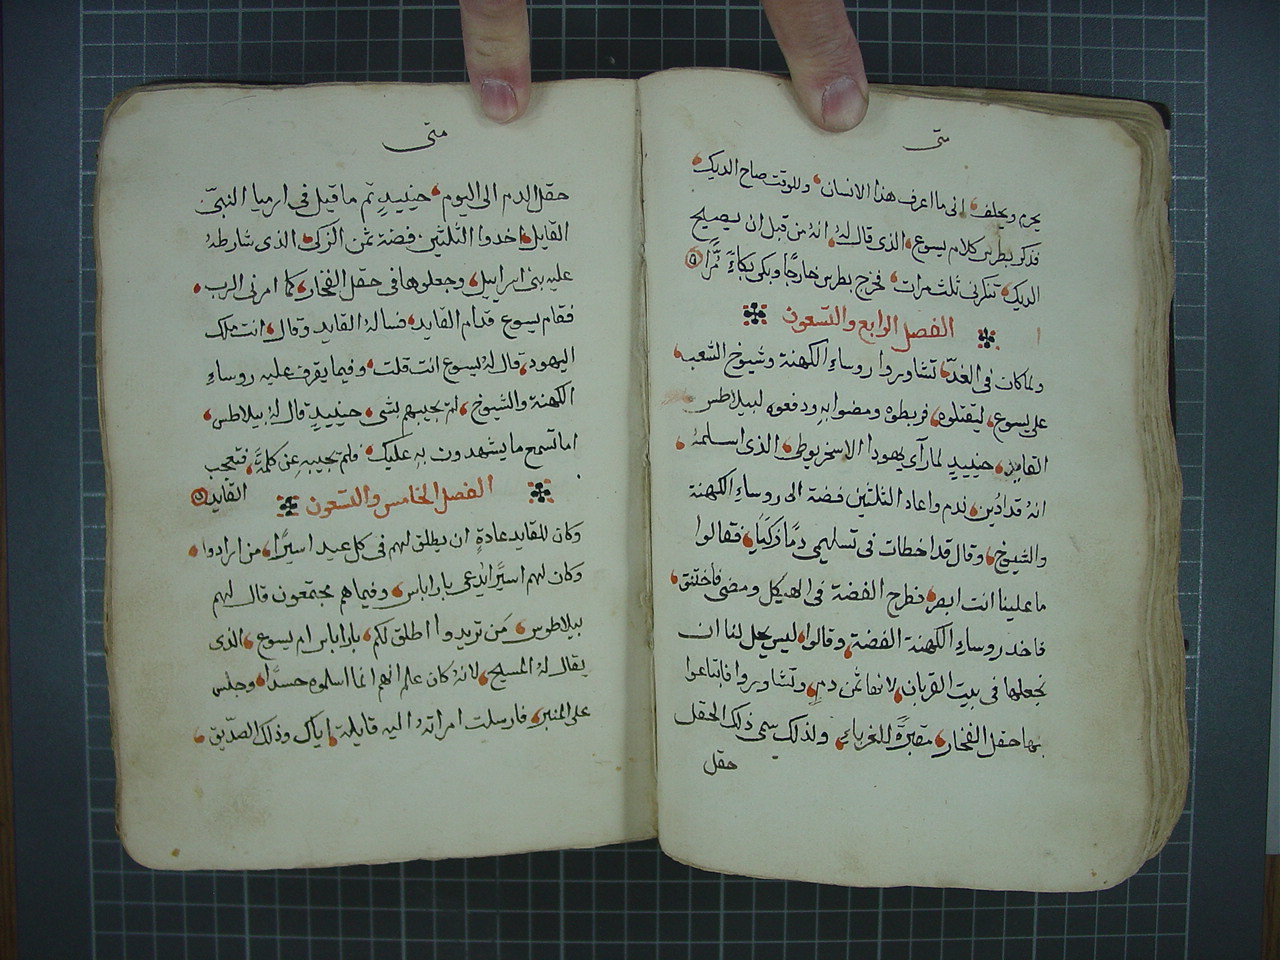 متى
يحرم ويحلف، انى ما اعرف هذا الانسان، وللوقت صاح الديك،
فذكر بطرس كلام يسوع، الذى قال لهُ، انهُ من قبل ان يصيح
الديك، تنكرنى ثلث مرات، فخرج بطرس خارجًا وبكى بكاءً مُرًّا
الفصل الرابع والتسعون
ولما كان فى الغد، تشاوروا روساء الكهنة وشيوخ الشعب،
على يسوع، ليقتلوه، فربطوه ومضوا بهِ ودفعوه لبيلاطس
القايد، حينيدٍ لما رآى يهودا الاسخريوطى، الذى اسلمهُ،
انهُ قد ادُين، ندم واعاد الثلثين فضة الى روساء الكهنة
والشيوخ، وقال قد اخطات فى تسليمى دمًا زكيًا، فقالوا
ما علينا انت ابصر، فطرح الفضة فى الهيكل ومضى فاختنق،
فاخد روساء الكهنة الفضة، وقالوا، ليس يحل لنا ان
نجعلها فى بيت القربان، لانها ثمن دمٍ، وتشاوروا فابتاعوا
بها حقل الفخار، مقبرةً للغرباءِ، ولذلك سمى ذلك الحقل
حقل
متى
حقل الدم الى اليوم، حينيدٍ تم ما قيل فى ارميا النبىّ
القايل، اخدوا الثلثين فضة ثمن الزكى، الذى شارطهُ
عليه بنى اسراييل، وجعلوها فى حقل الفخار، كما امرنى الرب،
فقام يسوع قدام القايد، فسالهُ القايد وقال، انت ملك
اليهود، قال لهُ يسوع انت قلت، وفيما يقرف عليه روساء
الكهنة والشيوخ، لم يجيبهم بشى، حينيدٍ قال لهُ بيلاطس،
اما تسمع ما يشهدون بهِ عليك، فلم يجيبهِ عن كلمةً، فتعجب
القايد
الفصل الخامس والتسعون
وكان للقايد عادةٍ ان يطلق لهم فى كل عيد اسيرًا، من ارادوا،
وكان لهم اسيرًا يُدعى باراباس، وفيما هم مجتمعون قال لهم
بيلاطوس، مَن تريدوا اطلق لكم، باراباس ام يسوع، الذى
يقال لهُ المسيح، لانهُ كان علم انهم انما اسلموه حسدًا، وجلس
على المنبر، فارسلت امراتهُ اليه قايلة، اياك وذلك الصدّيق،